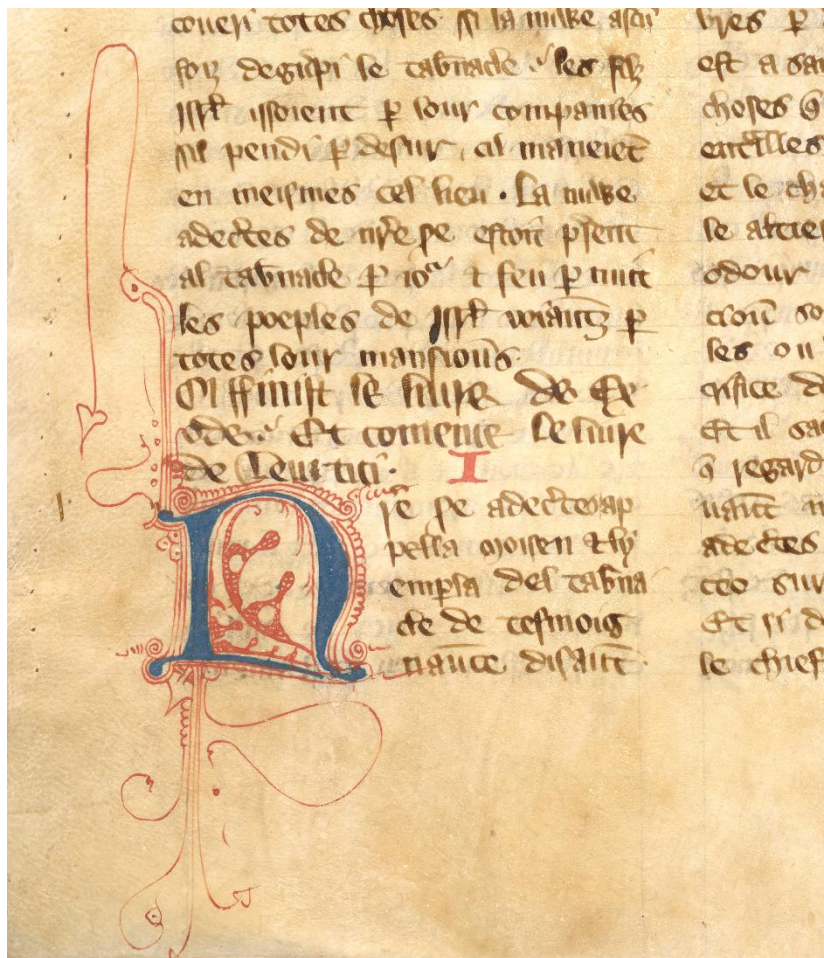 coueri totes choses si la nuwe ascu
foiz degerpi le tab̄nacle les filz
isrł issoient ꝑ lour companies
sil pendi ꝑ desur, cil maneiēt
en meismes cel lieu . La nuwe
adectes de nr̄e se estoit p̄sent
al tab̄nacle ꝑ io᷑ & feu ꝑ nuit
les poeples de isrł voiantz ꝑ
totes lour mansioūs.
Ci ffinist le liure de Ex
ode. Et comence le liure
de Leuitici. I
Nr̄e se adecteᷤ ap
pella moisen & ly
empla del tab̄na
cle de tesmoig
naūce disaūt.
bres ꝑ
est a sa
choses q̄
entrailles
et le cha
le altier
odour
cioū so
les ou
crifice de
Et il sa
q̄ regard
uaūt
adectes
ceo sur
Et si d
le chief